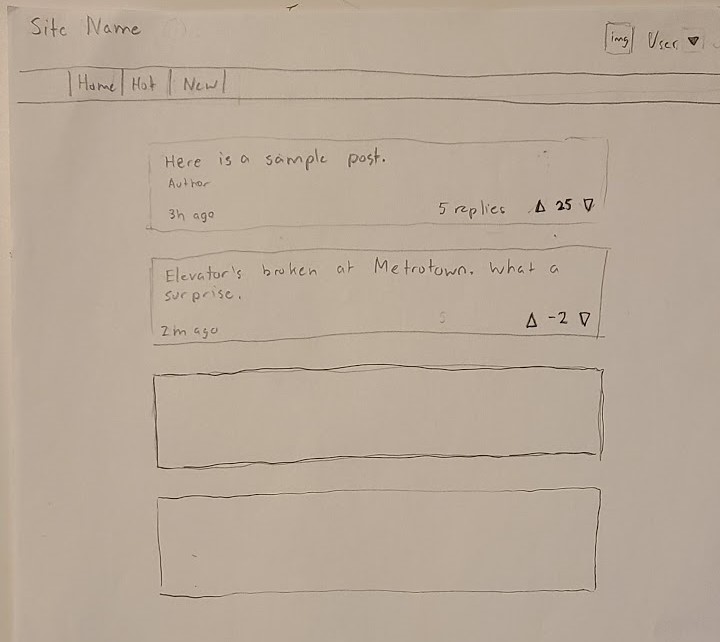 Site Name
img User ▼
Home Hot New
Here is a sample post.
Author
3h ago 5 replies △ 25 ▽
Elevator's broken at Metrotown. What a
surprise.
2m ago △ -2 ▽